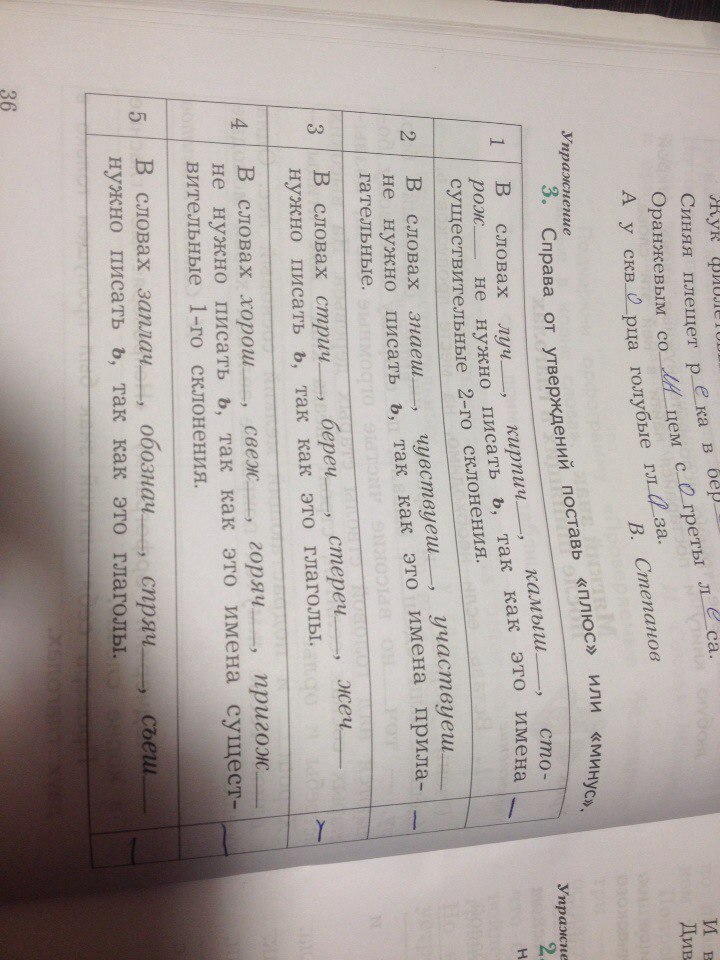 Синяя плещет река в бер
Оранжевым солнцем согреты леса.
А у скворца голубые глаза.
В. Степанов
Упражнение
3. Справа от утверждений поставь «плюс» или «минус».
1 В словах луч__, киртич__, камыш__, сто-
рож__ не нужно писать ь, так как это имена —
существительные 2-го склонения.
2 В словах знаеш__, чувствуеш__, участвуеш__
не нужно писать ь, так как это имена прила- —
гательные.
3 В словах стрич__, береч__, стереч__, жеч__
нужно писать ь, так как это глаголы. +
4 В словах хорош__, свеж__, горяч__, пригож__
не нужно писать ь, так как это имена сущест- —
вительные 1-го склонения.
5 В словах заплач__, обознач__, спряч__, съеш__
нужно писать ь, так как это глаголы. —
36
Упражне
2.
И в
Див
н